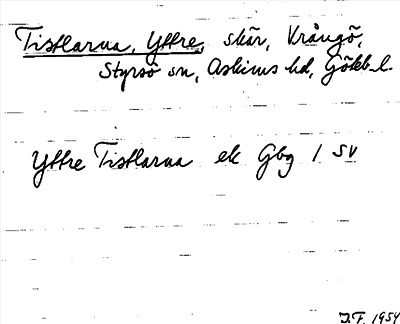 Tistlarna, Yttre, skär, Vrångö,
Styrsö sn, Askims hd, Götebl.
Yttre Tistlarna ek Gbg 1 SV
J.F. 1954